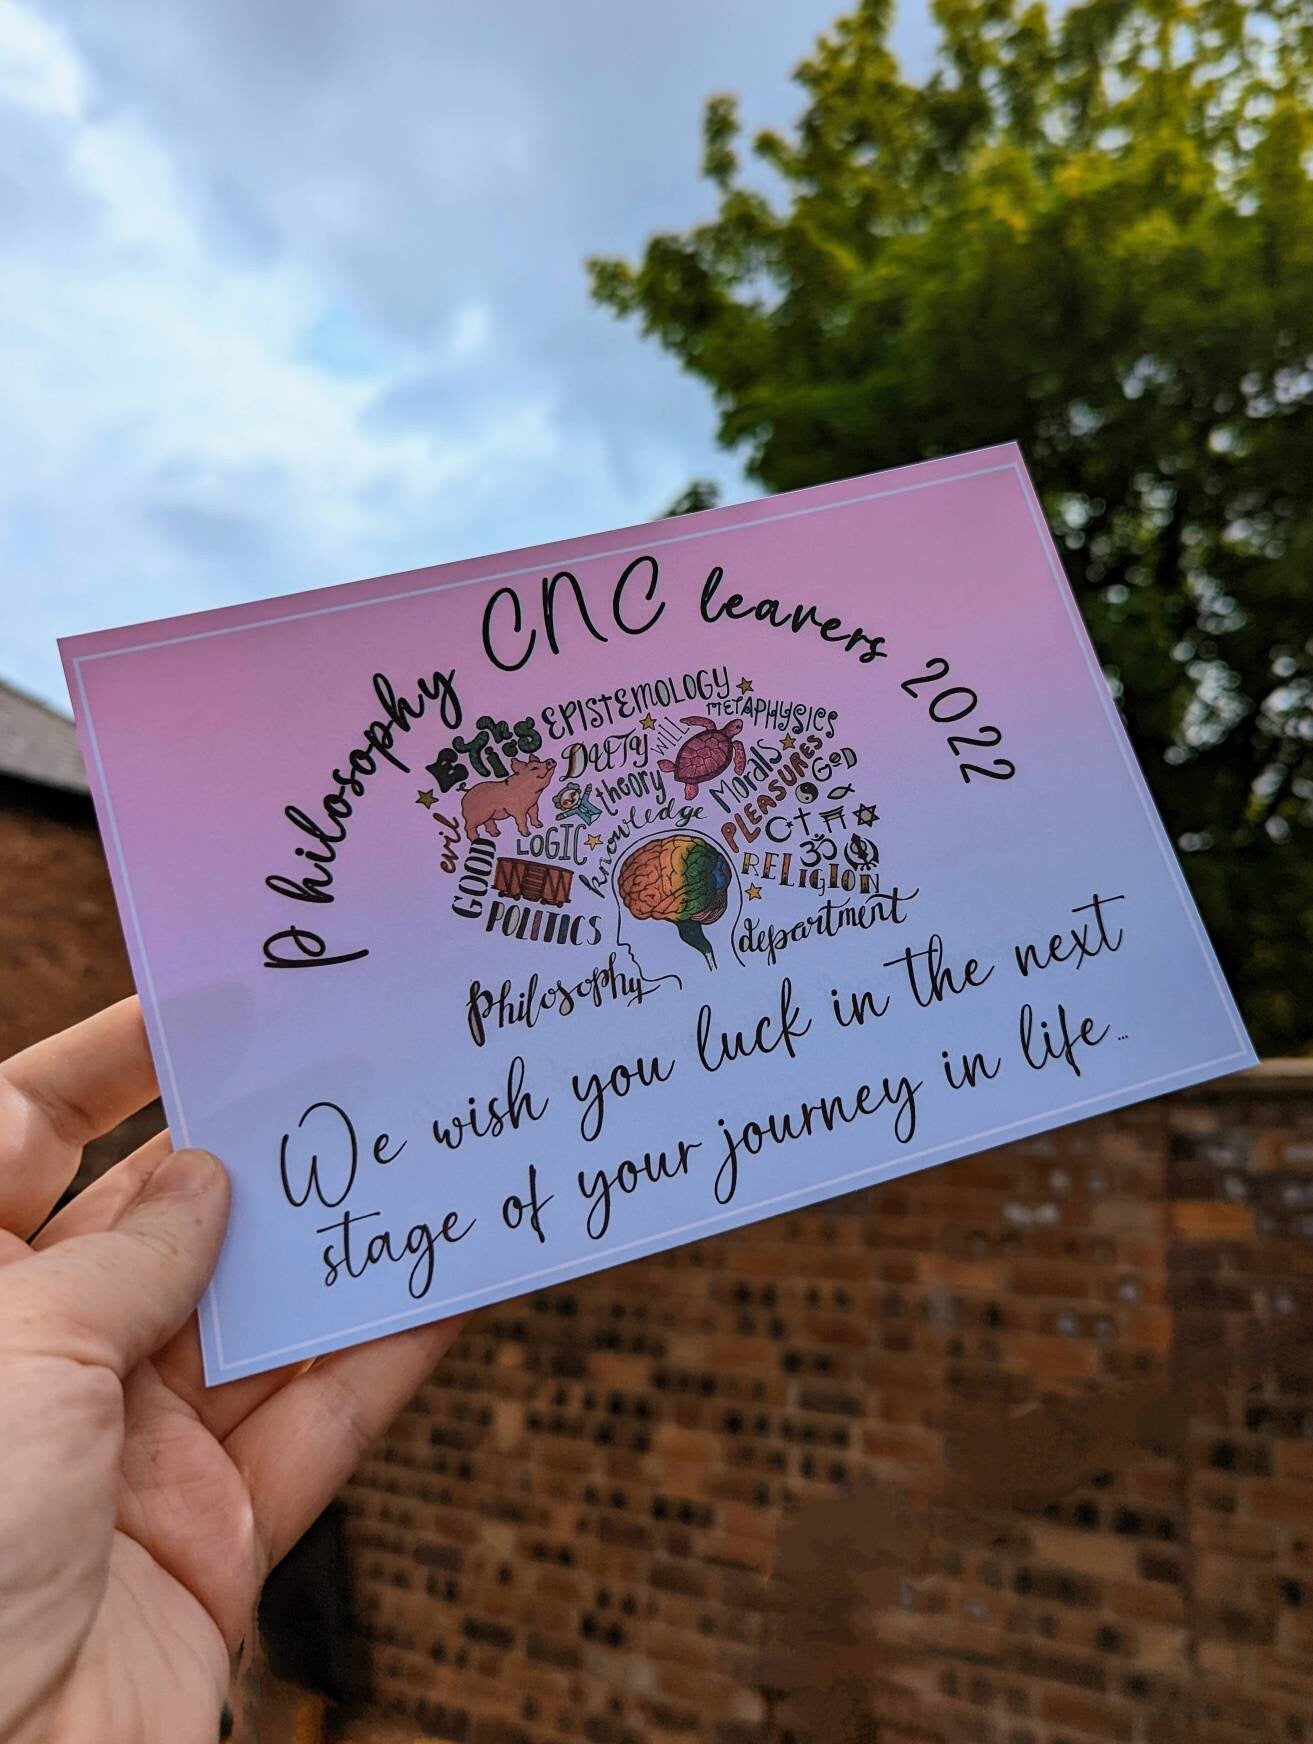 Philosophy CNC leavers 2022
EtHics EPIStEMOLOGY METAPHYSICS
DUTY will Morals PLEASURES GoD
theory
evil LOGIC knowledge
GOOD RELIGION
POLITICS
Philosophy department
We wish you luck in the next
stage of your journey in life...